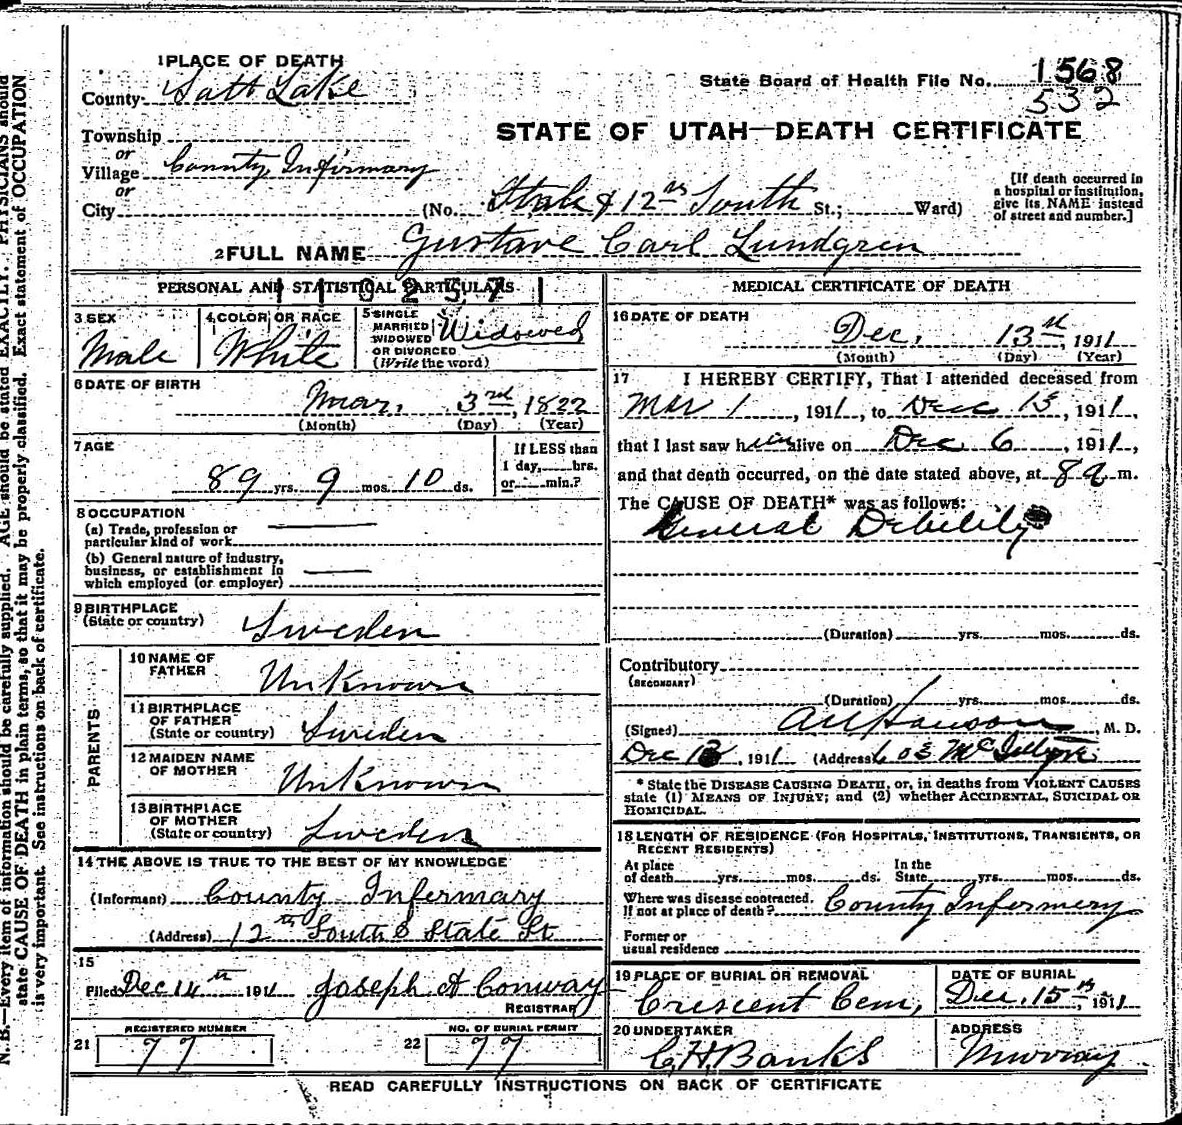 1 PLACE OF DEATH
County Salt Lake
State Board of Health File No. 1568
532
STATE OF UTAH—DEATH CERTIFICATE
Township
or
Village County Infirmary
or
City (No. State & 12th South St.; Ward)
[If death occurred in
a hospital or institution,
give its NAME instead
of street and number.]
2 FULL NAME Gustave Carl Lundgren
PERSONAL AND STATISTICAL PARTICULARS
1 1 0 2 5 7 1
3 SEX
Male
4 COLOR OR RACE
White
5 SINGLE
MARRIED
WIDOWED
OR DIVORCED
(Write the word)
Widowed
6 DATE OF BIRTH
Mar, 3rd, 1822
(Month) (Day) (Year)
7 AGE
89 yrs. 9 mos. 10 ds.
If LESS than
1 day, hrs.
or min.?
8 OCCUPATION
(a) Trade, profession or
particular kind of work
(b) General nature of industry,
business, or establishment in
which employed (or employer)
9 BIRTHPLACE
(State or country)
Sweden
PARENTS
10 NAME OF
FATHER
Unknown
11 BIRTHPLACE
OF FATHER
(State or country)
Sweden
12 MAIDEN NAME
OF MOTHER
Unknown
13 BIRTHPLACE
OF MOTHER
(State or country)
Sweden
14 THE ABOVE IS TRUE TO THE BEST OF MY KNOWLEDGE
(Informant) County Infermary
(Address) 12th South & State St
15
Filed Dec 14th 1911 Joseph A Conway
REGISTRAR
REGISTERED NUMBER
21 77
NO. OF BURIAL PERMIT
22 77
MEDICAL CERTIFICATE OF DEATH
16 DATE OF DEATH
Dec, 13th, 1911
(Month) (Day) (Year)
17 I HEREBY CERTIFY, That I attended deceased from
Mar 1, 1911, to Dec 13, 1911,
that I last saw him alive on Dec 6, 1911,
and that death occurred, on the date stated above, at 8 a m.
The CAUSE OF DEATH* was as follows:
General Debility
(Duration) yrs. mos. ds.
Contributory
(SECONDARY)
(Duration) yrs. mos. ds.
(Signed) M. D.
Dec 13, 1911 (Address)
* State the DISEASE CAUSING DEATH, or, in deaths from VIOLENT CAUSES
state (1) MEANS OF INJURY; and (2) whether ACCIDENTAL, SUICIDAL OR
HOMICIDAL.
18 LENGTH OF RESIDENCE (FOR HOSPITALS, INSTITUTIONS, TRANSIENTS, OR
RECENT RESIDENTS)
At place
of death yrs. mos. ds.
In the
State yrs. mos. ds.
Where was disease contracted,
If not at place of death? County Infermery
Former or
usual residence
19 PLACE OF BURIAL OR REMOVAL
Crescent Cem,
DATE OF BURIAL
Dec, 15th 1911
20 UNDERTAKER
C. H. Banks
ADDRESS
Murray
READ CAREFULLY INSTRUCTIONS ON BACK OF CERTIFICATE
N. B.—Every item of information should be carefully supplied. AGE should be stated EXACTLY. PHYSICIANS should
state CAUSE OF DEATH in plain terms, so that it may be properly classified. Exact statement of OCCUPATION
is very important. See instructions on back of certificate.